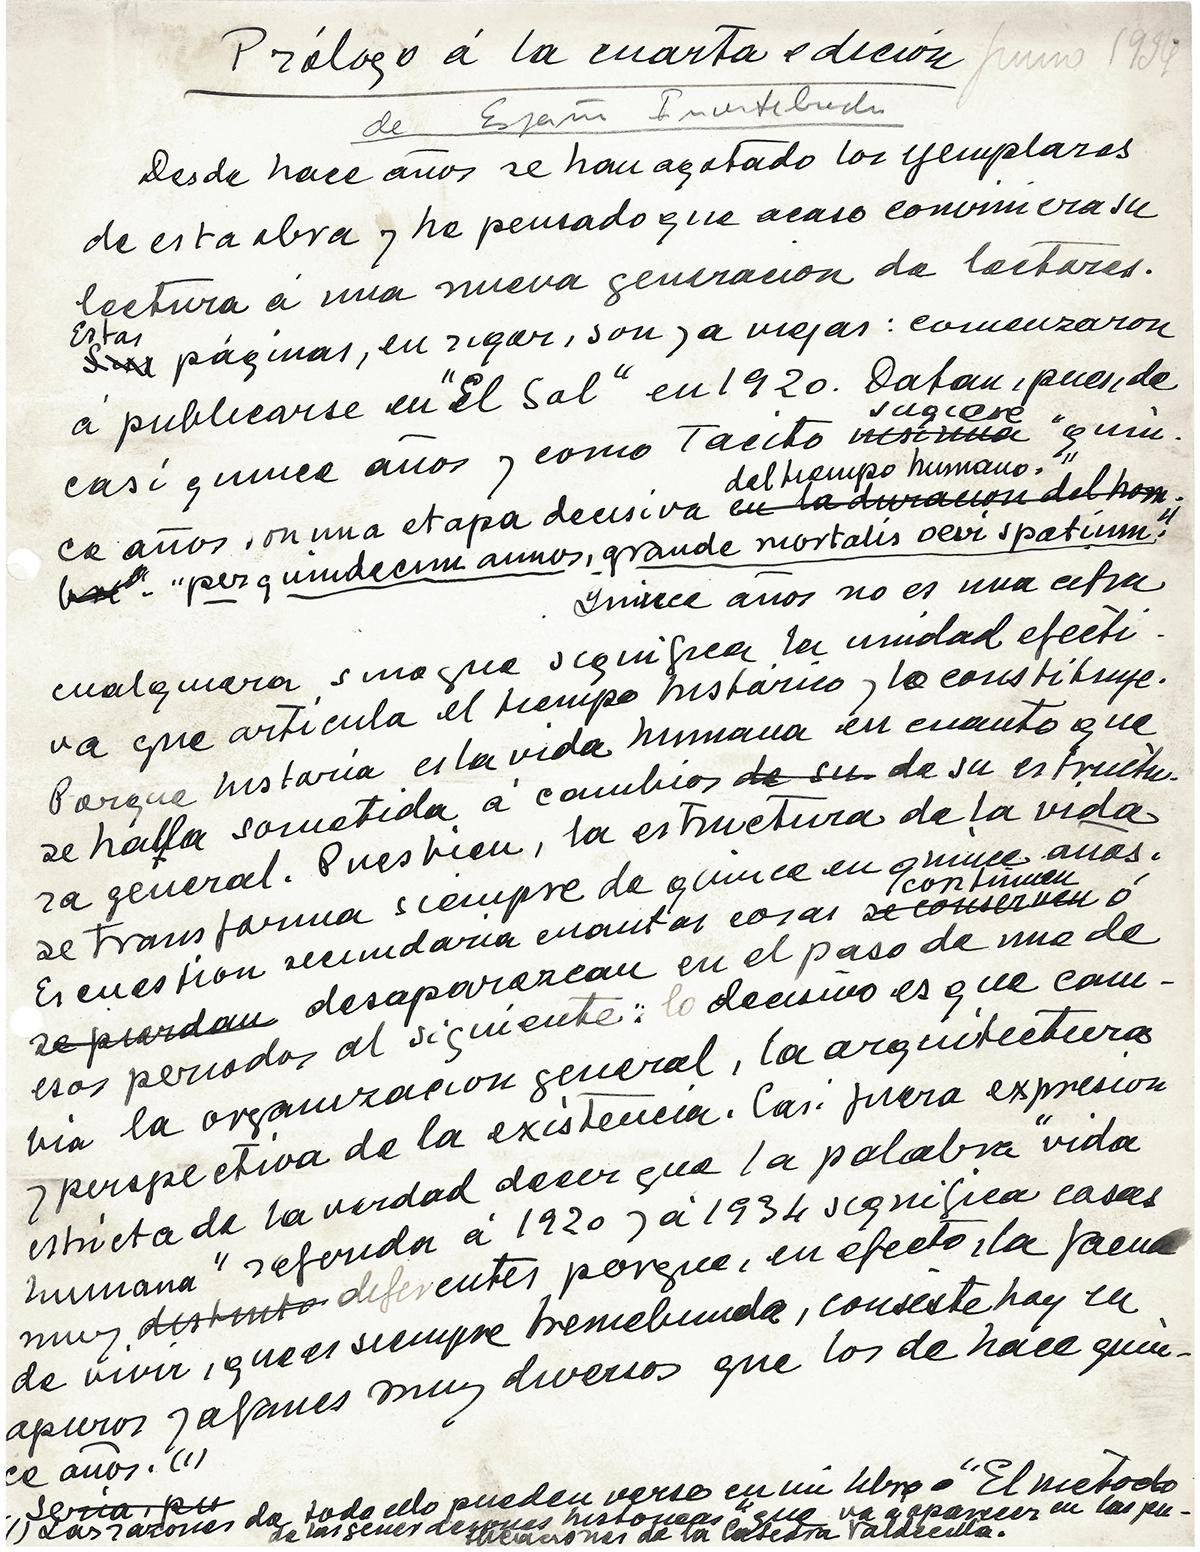 Prólogo á la cuarta edición Junio 1934
de España Invertebrada
Desde hace años se han agotado los ejemplares
de esta obra y he pensado que acaso conviniera su
lectura á una nueva generacion de lectores.
Estas
páginas, en rigor, son ya viejas: comenzaron
á publicarse en "El Sol" en 1920. Datan, pues, de
sugiere
casi quince años y como Tacito insinua "quin-
del tiempo humano."
ce años, son una etapa decisiva en la duracion del hom-
bre". "per quindecim annos, grande mortalis aevi spatium".
Quince años no es una cifra
cualquiera, sino que significa la unidad efecti-
va que articula el tiempo histórico y lo constituye.
Porque historia es la vida humana en cuanto que
se halla sometida á cambios de su de su estructu-
ra general. Pues bien, la estructura de la vida
se transforma siempre de quince en quince años.
continuen
Es cuestion secundaria cuantas cosas se conserven ó
se pierdan desaparezcan en el paso de uno de
esos periodos al siguiente: lo decisivo es que cam-
bia la organizacion general, la arquitectura
y perspectiva de la existencia. Casi fuera expresion
estricta de la verdad decir que la palabra "vida
humana" referida á 1920 y á 1934 significa cosas
muy distinto diferentes porque, en efecto, la faena
de vivir, que es siempre tremebunda, consiste hoy en
apuros y afanes muy diversos que los de hace quin-
ce años. (1)
seria, pu
(1) Las razones de todo ello pueden verse en mi libro "El metodo
de las generaciones historicas" que va a aparecer en las pu-
blicaciones de la Catedra Valdecilla.